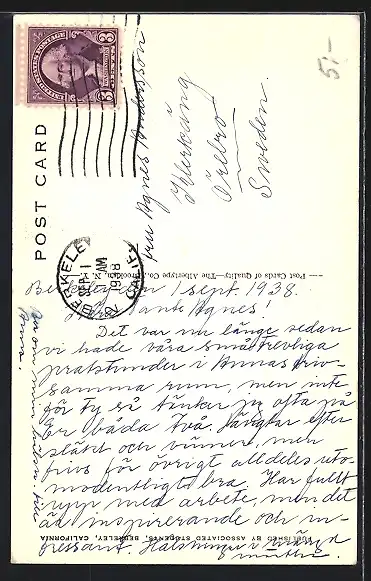 5:-
UNITED STATES POSTAGE
3 CENTS 3
POST CARD
BERKELEY
SEP 1
2 AM
1938
CALIF.
Fru Agnes Andersson
Örebro
Sweden.
— Post Cards of Quality—The Albertype Co., Brooklyn, N. Y.
Berkeley den 1 sept. 1938.
Tant Agnes!
Det var nu länge sedan
vi hade våra små trevliga
pratstunder i Annas
rum, men inte
för ty så tänker jag ofta på
Er båda två. Längtar efter
släkt och vänner, men
för övrigt alldeles
bra. Har fullt
upp med arbete, men det
är inspirerande och in-
tressant. i
PUBLISHED BY ASSOCIATED STUDENTS, BERKELEY, CALIFORNIA